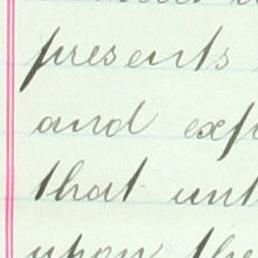 presents
and exp
that unt
upon the